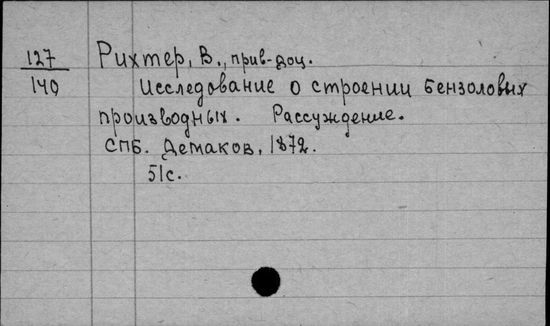 127
140
Рихтер, В., прив-доц.
Исследование о строении бензоловых
производных. Рассуждение.
СПБ. Демаков, 1872.
51с.